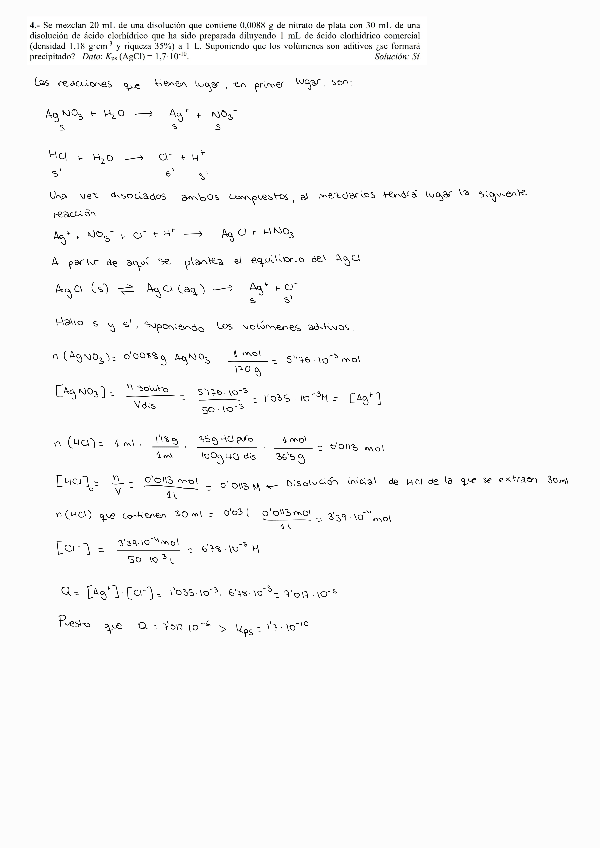 4.- Se mezclan 20 mL de una disolución que contiene 0.0088 g de nitrato de plata con 30 mL de una
disolución de ácido clorhídrico que ha sido preparada diluyendo 1 mL de ácido clorhídrico comercial
(densidad 1.18 g·cm⁻³ y riqueza 35%) a 1 L. Suponiendo que los volúmenes son aditivos ¿se formará
precipitado? Dato: Kps (AgCl) = 1.7·10⁻¹⁰. Solución: Sí
Las reacciones que tienen lugar, en primer lugar, son:
AgNO₃ + H₂O → Ag⁺ + NO₃⁻
s s s
HCl + H₂O → Cl⁻ + H⁺
s' s' s'
Una vez disociados ambos compuestos, al mezclarlos tendrá lugar la siguiente
reacción
Ag⁺ + NO₃⁻ + Cl⁻ + H⁺ → AgCl + HNO₃
A partir de aquí se plantea el equilibrio del AgCl
AgCl (s) ⇌ AgCl (aq) → Ag⁺ + Cl⁻
s s'
Hallo s y s', suponiendo los volúmenes aditivos.
n (AgNO₃) = 0'0088 g AgNO₃ · 1 mol / 170 g = 5'176·10⁻⁵ mol
[AgNO₃] = n soluto / Vdis = 5'176·10⁻⁵ / 50·10⁻³ = 1'035·10⁻³ M = [Ag⁺]
n (HCl) = 1 ml · 1'18 g / 1 ml · 35 g HCl puro / 100 g HCl dis · 1 mol / 36'5 g = 0'0113 mol
[HCl]₀ = n / V = 0'0113 mol / 1 l = 0'0113 M ← Disolución inicial de HCl de la que se extraen 30 ml
n (HCl) que contienen 30 ml = 0'03 l · 0'0113 mol / 1 l = 3'39·10⁻⁴ mol
[Cl⁻] = 3'39·10⁻⁴ mol / 50·10⁻³ l = 6'78·10⁻³ M
Q = [Ag⁺]·[Cl⁻] = 1'035·10⁻³ · 6'78·10⁻³ = 7'017·10⁻⁶
Puesto que Q = 7'017·10⁻⁶ > Kps = 1'7·10⁻¹⁰